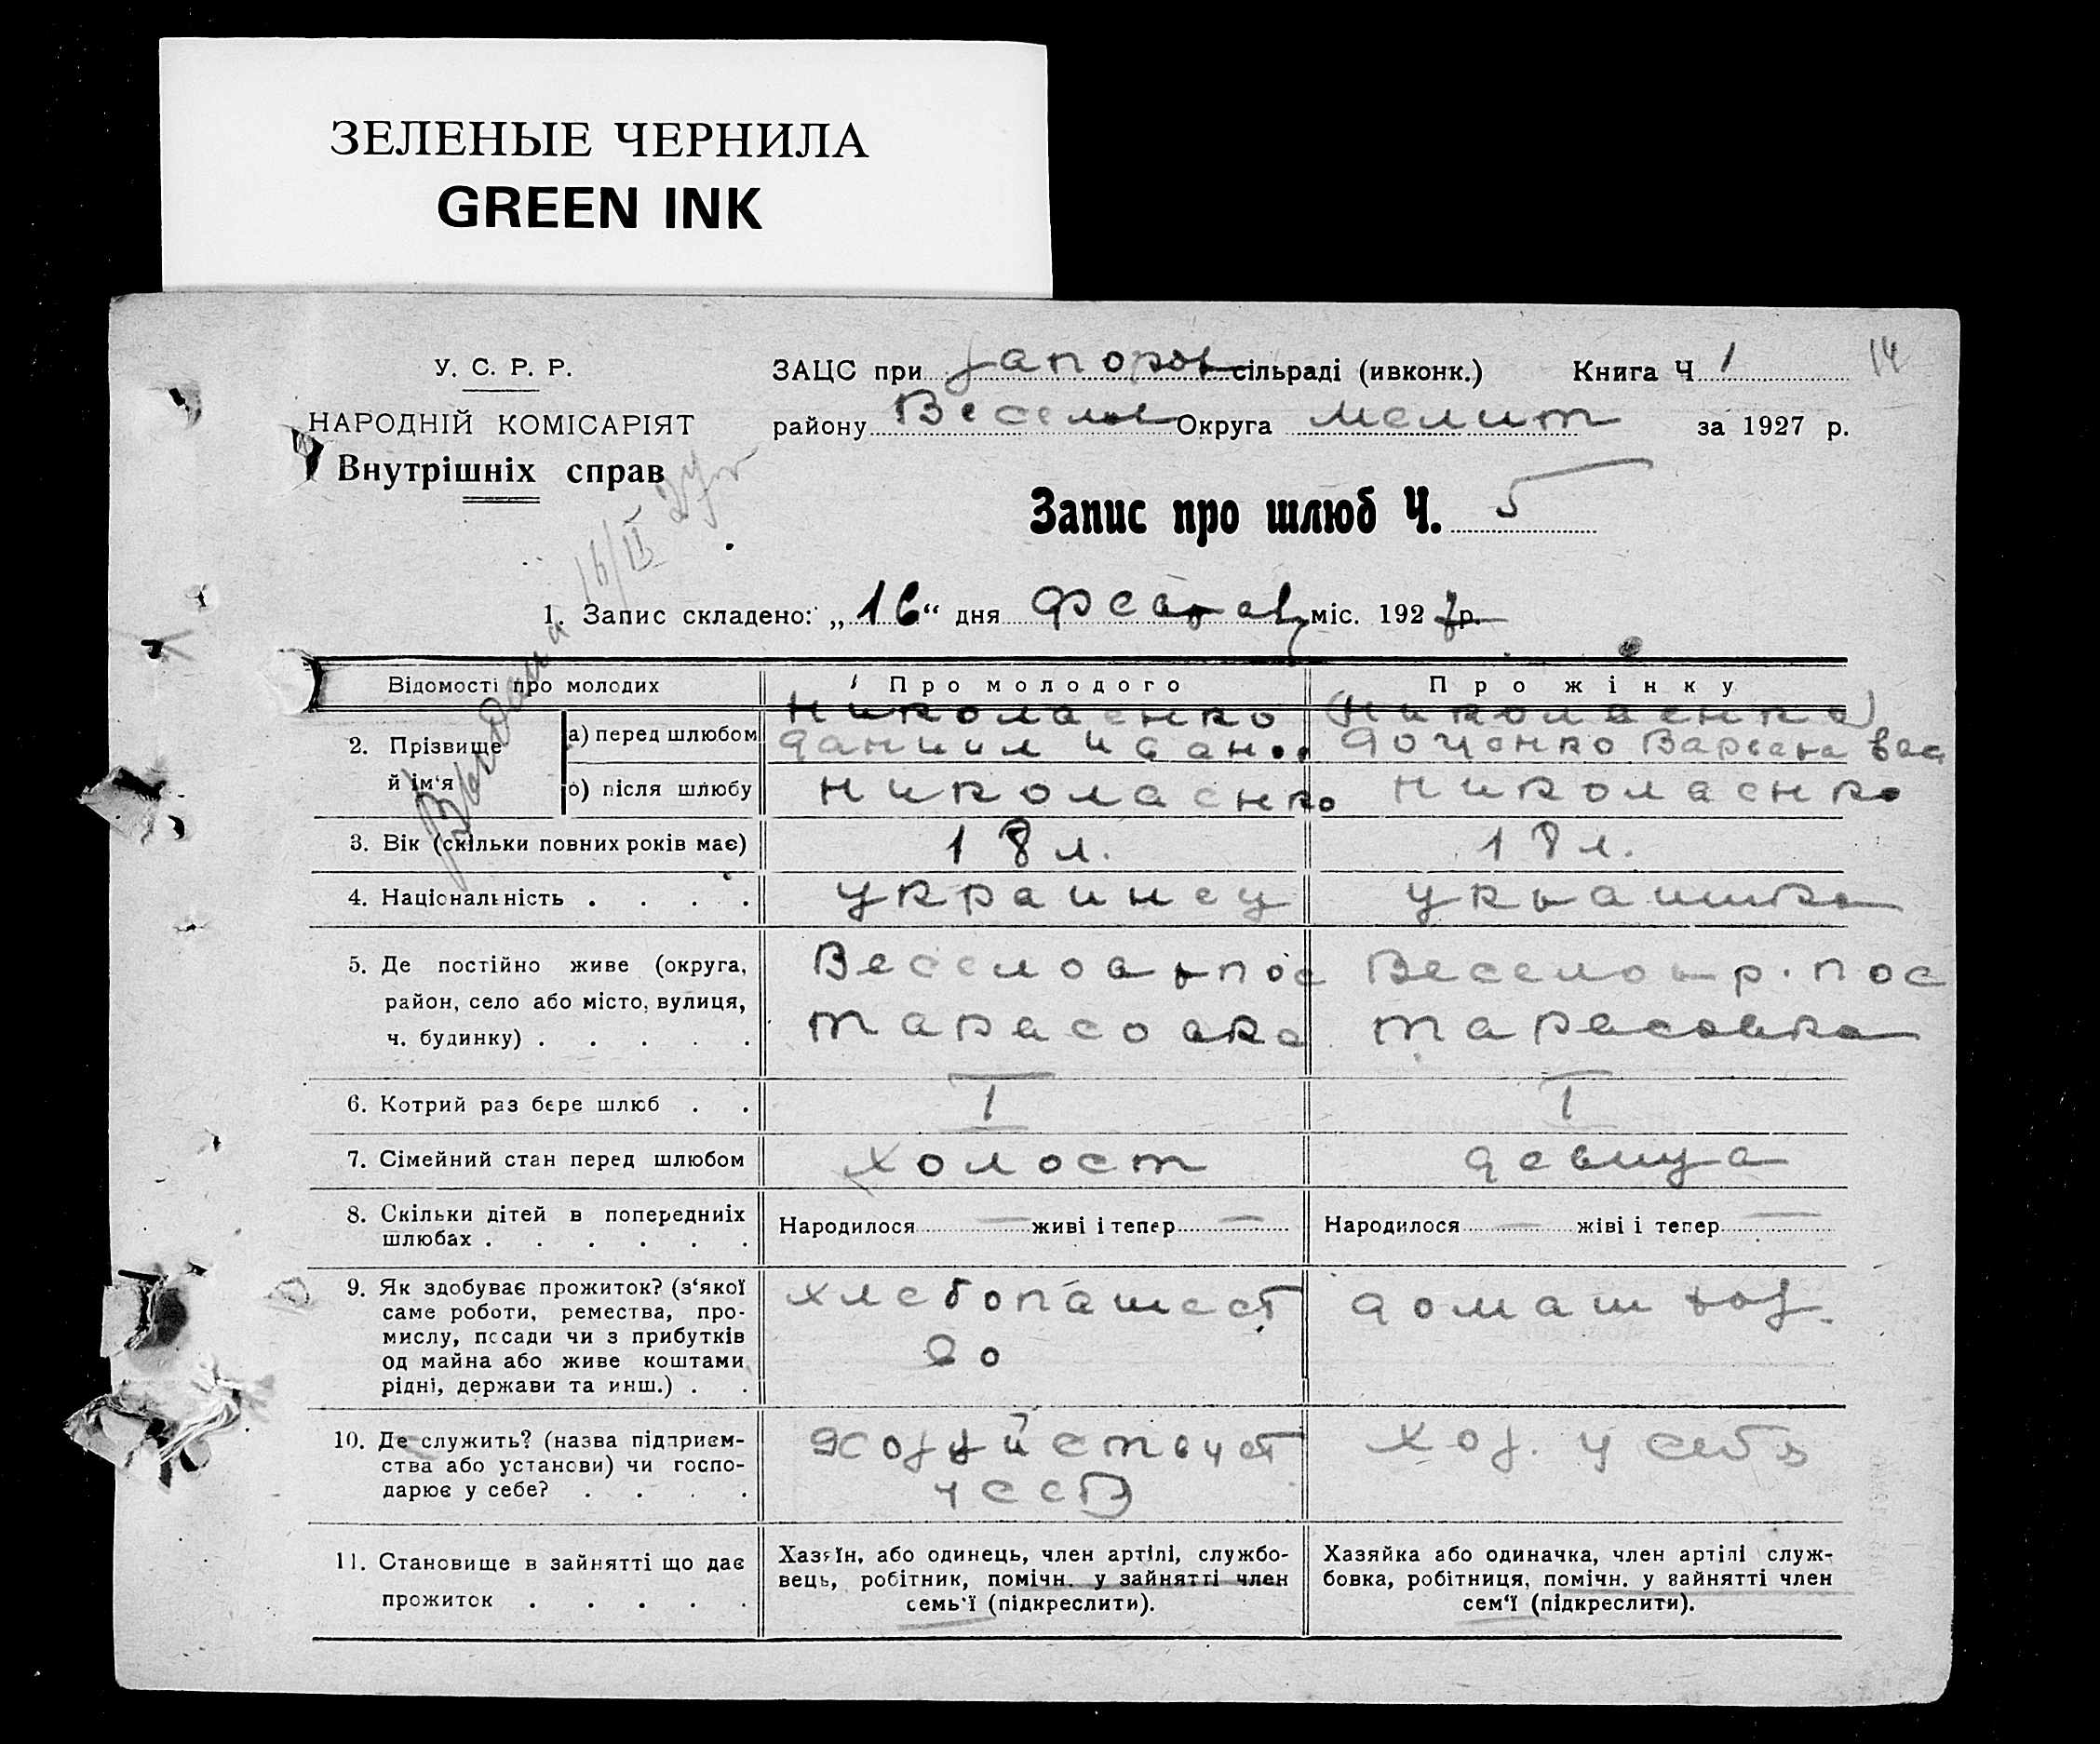 ЗЕЛЕНЫЕ ЧЕРНИЛА
GREEN INK
У. С. Р. Р.
НАРОДНІЙ КОМІСАРІЯТ
Внутрішніх справ
ЗАЦС при Запоров сільраді (ивконк.) Книга Ч 1 14
району Веселов Округа Мелит за 1927 р.
Запис про шлюб Ч. 5
16/II 27 г
Выдана
1. Запис складено: „16“ дня міс. 1927 р.
Відомості про молодих Про молодого Про жінку
2. Прізвище й ім‘я
а) перед шлюбом Николаенко Даниил Иванов (Николаенко) Доценко Варвара Вас
б) після шлюбу Николаенко Николаенко
3. Вік (скільки повних років має) 18 л. 18 л.
4. Національність . . . . украинец украинка
5. Де постійно живе (округа, Веселов р пос Веселов р. пос
район, село або місто, вулиця, Тарасовка Тарасовка
ч. будинку) . . . . .
6. Котрий раз бере шлюб . . I I
7. Сімейний стан перед шлюбом холост девица
8. Скільки дітей в попередниіх Народилося — живі і тепер — Народилося — жіві і тепер —
шлюбах . . . . . .
9. Як здобуває прожиток? (з‘якої хлебопашест домаш хоз.
саме роботи, ремества, про- во
мислу, посади чи з прибутків
од майна або живе коштами
рідні, держави та инш.) . .
10. Де служить? (назва підприєм- хозяйствует хоз. у себя
ства або установи) чи госпо- у себя
дарює у себе? . . . .
11. Становище в зайнятті що дає Хазяїн, або одинець, член артілі, службо- Хазяйка або одиначка, член артілі служ-
прожиток . . . . . вець, робітник, помічн. у зайнятті член бовка, робітниця, помічн. у зайнятті член
семь‘ї (підкреслити). сем‘ї (підкреслити).